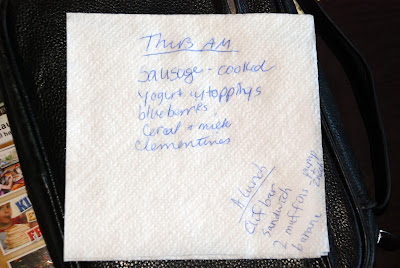 Thurs AM
Sausage - cooked
Yogurt w/toppings
blueberries,
Cereal + milk
Clementines
Lunch
Clif bar
Sandwich
2 muffins pump
banana